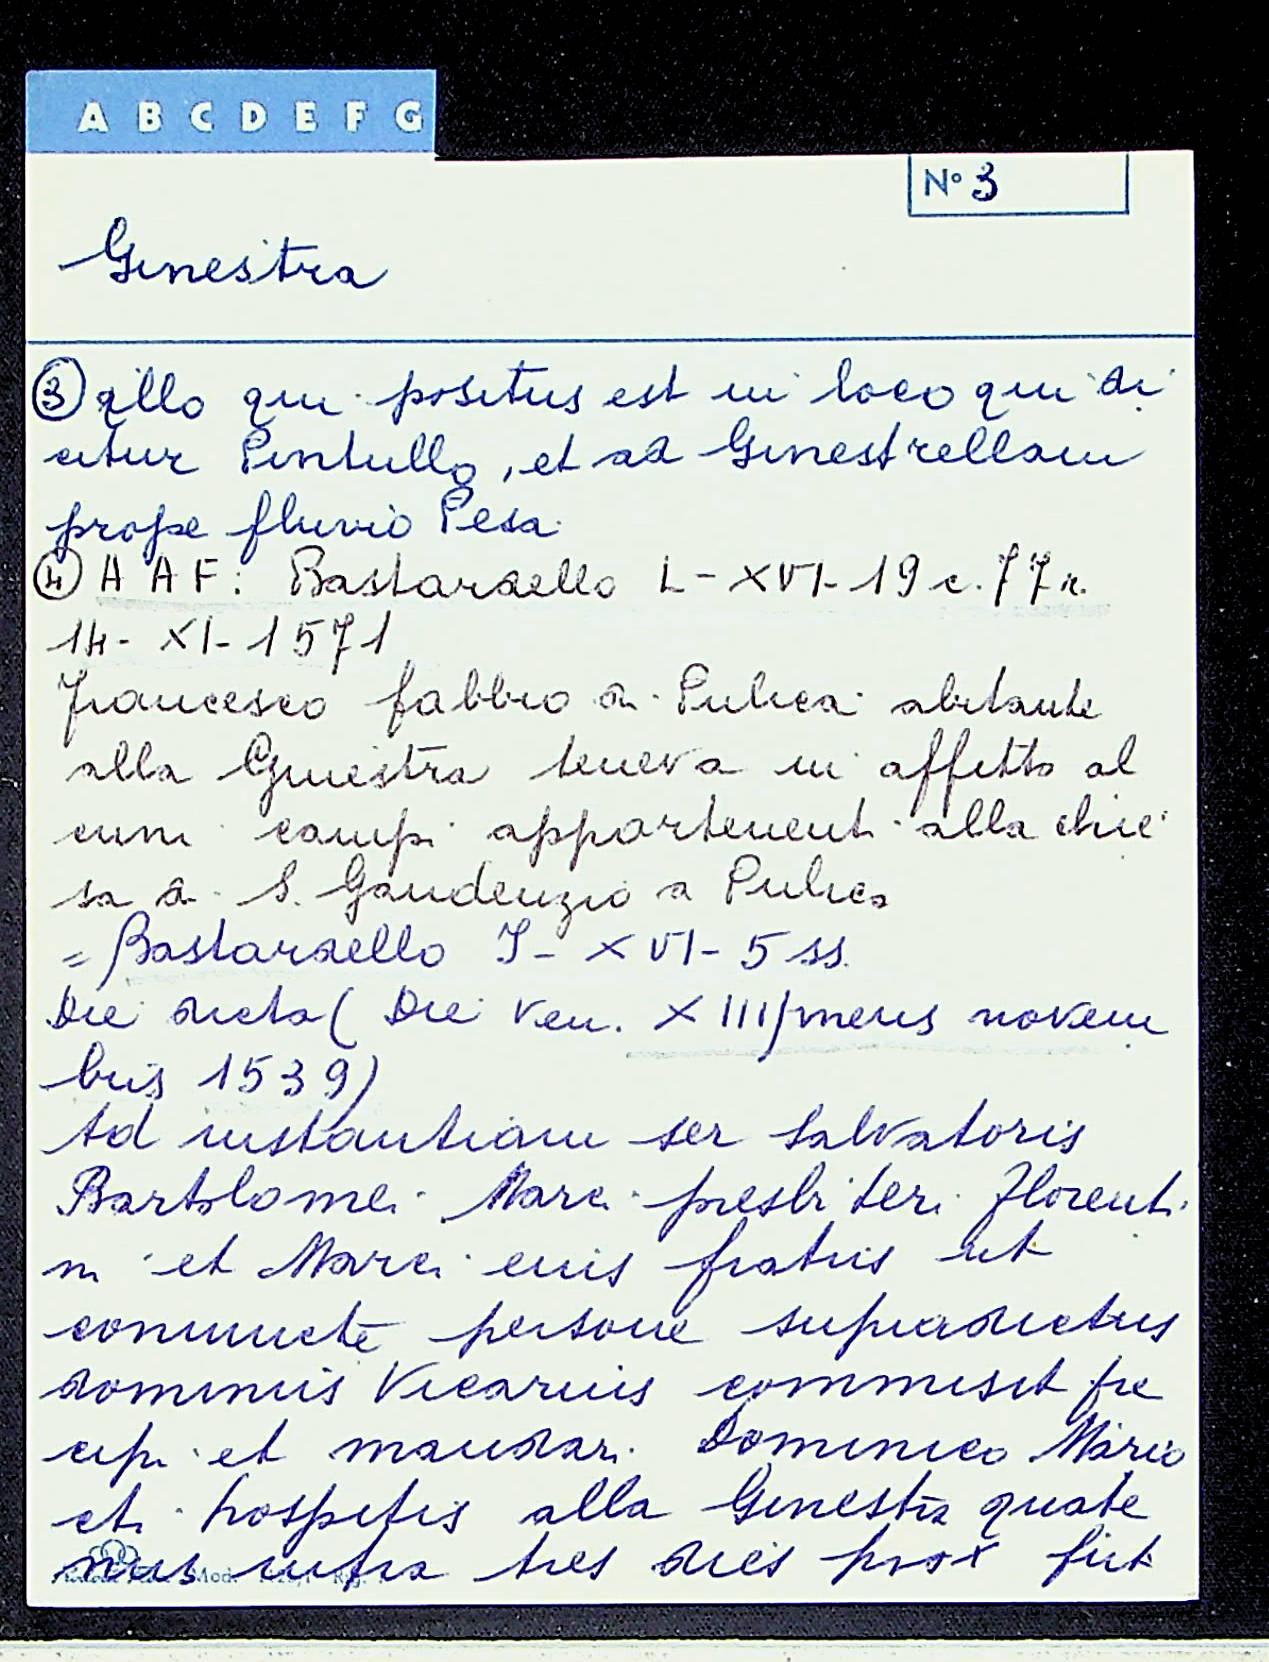 A B C D E F G
N° 3
Ginestra
③ illo qui positus est in loco qui di
citur Pintullo, et ad Ginestrellam
prope fluvio Pesa
④ A A F: Bastardello L-XVI-19 c. 77 r.
14-XI-1571
Francesco fabbro di Pulica abitante
alla Ginestra teneva in affitto al
cuni campi appartenenti alla chie
sa di S. Gaudenzio a Pulica
= Bastardello I-XVI-5 ss.
Die dicta (Die Ven. XIIII mensis novem
bris 1539)
Ad instantiam ser Salvatoris
Bartolomei Marci presbiteri Florenti
ni et Marci eius fratris ut
coniuncte persone supradictus
dominus Vicarius commisit pre
cipi et mandari Dominico
hospitis alla Ginestra quate
nus infra tres dies prox fut
Mod.